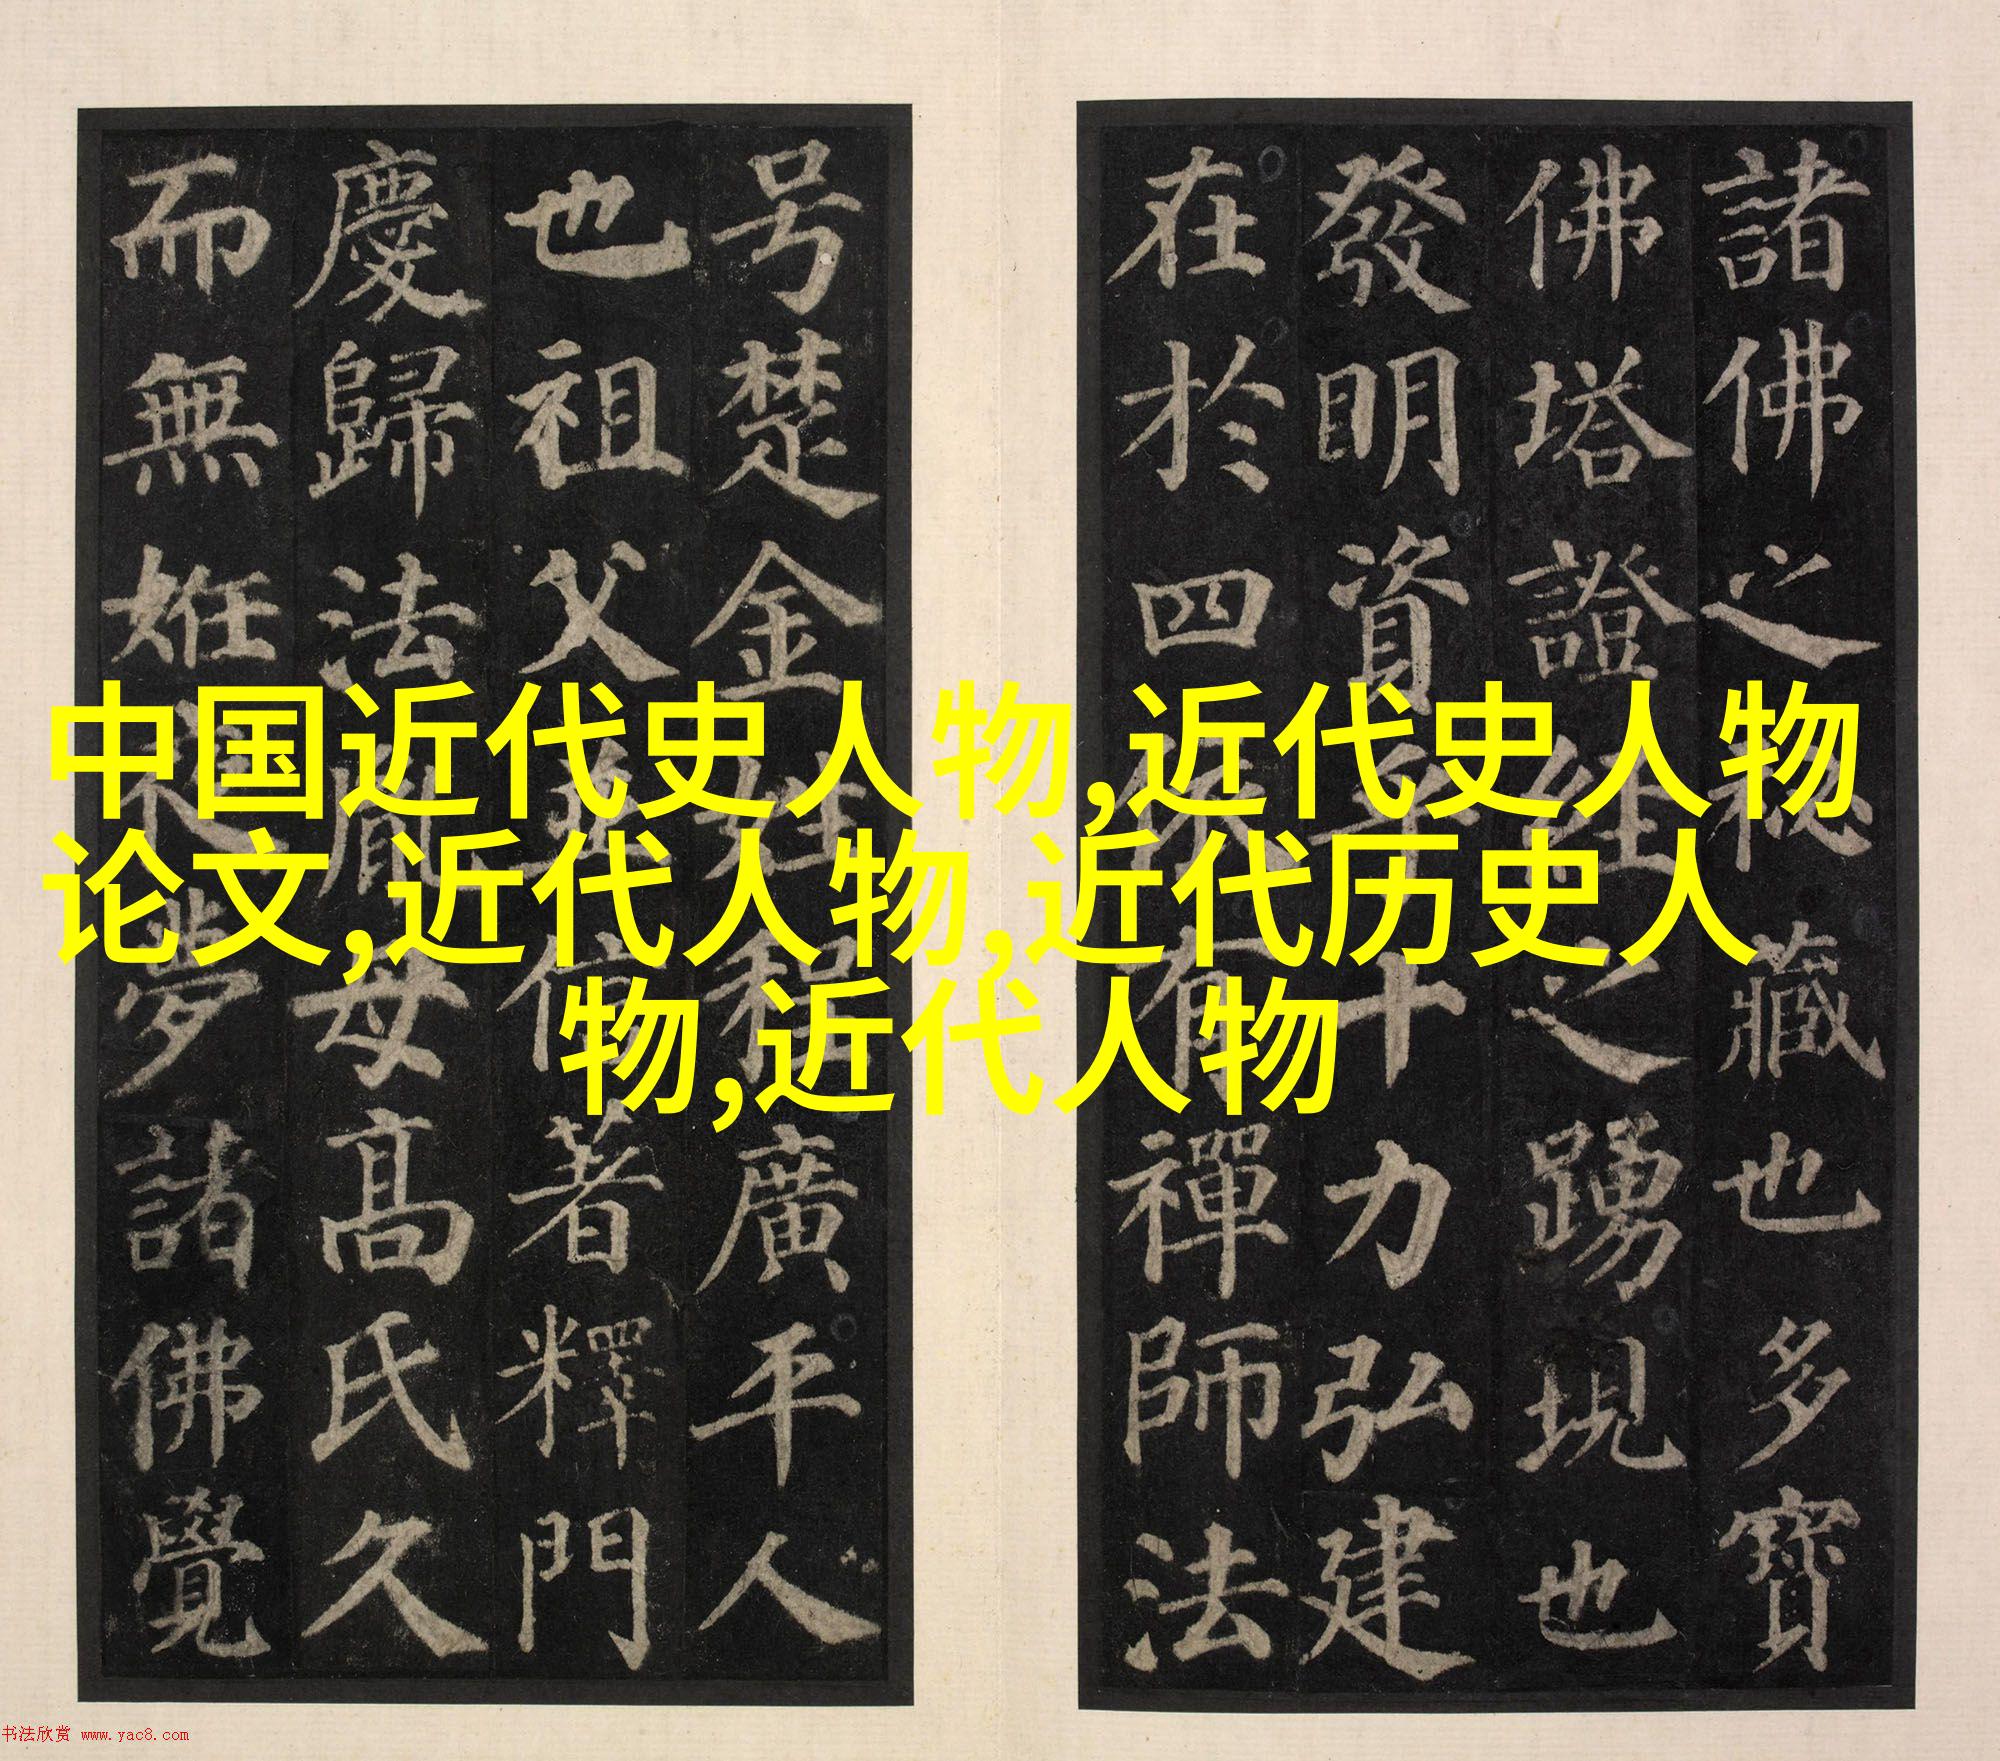 中国近代史人物,近代史人物
论文,近代人物,近代历史人
物,近代人物
諸佛之秘藏也多寶
佛塔證經之踴現也
發明資乎十力弘建
在於四依有禪師法
号楚金姓程廣平人
也祖父並信著釋門
慶歸法胤母高氏久
而無姙夜夢諸佛覺
书法欣赏 www.yac8.com